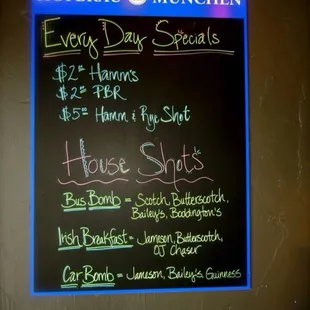 HOFBRÄU MÜNCHEN
Every Day Specials
$2.00 Hamm's
$2.50 PBR
$5.00 Hamm & Rye Shot
House Shots
Bus Bomb = Scotch, Butterscotch,
Bailey's, Boddington's
Irish Breakfast = Jameson, Butterscotch,
OJ Chaser
Car Bomb = Jameson, Bailey's, Guinness